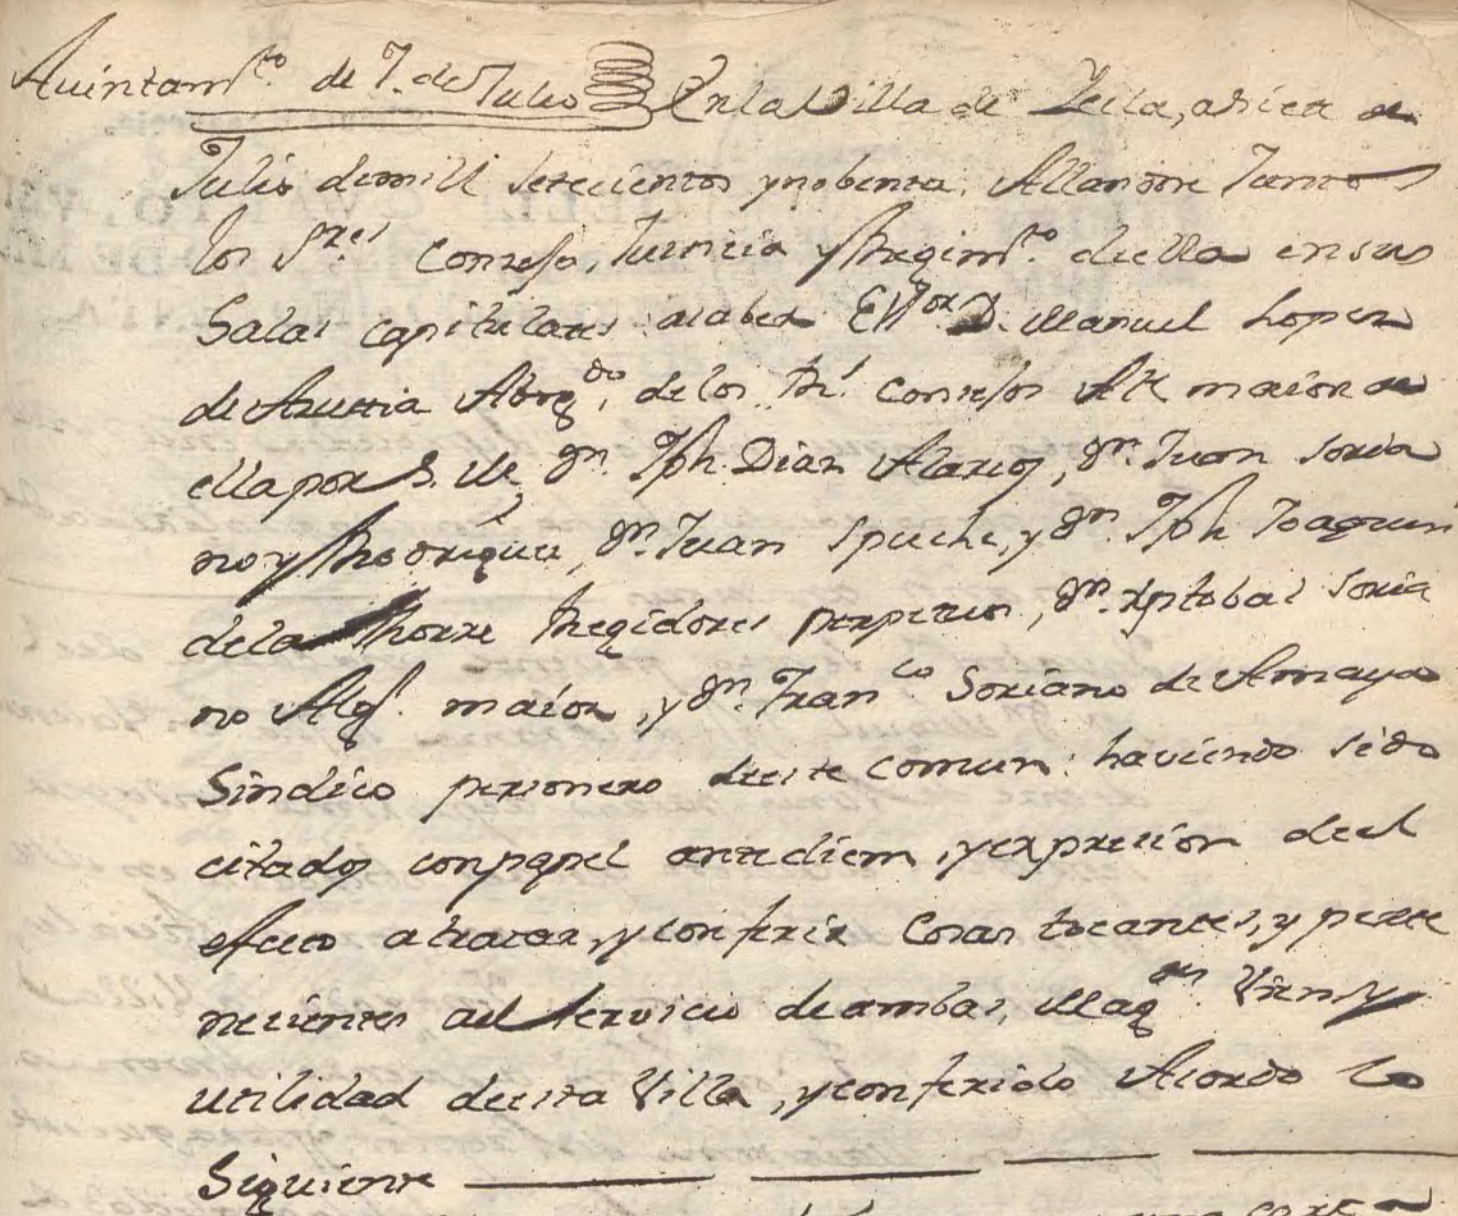 Auintamto. de 7. de Julio En la Villa de Yecla, a siete de
Julio de mill setecientos y nobenta. Allandose Juntos
los Sres. Consejo, Justicia y Rregimto. de ella en sus
Salas capitulares asaber El Sor. D. Manuel Lopez
de Abogdo. de los Rs. Consejos Alce. maior de
ella por S. M. Dn. Jph. Dian Alarcos, Dn. Juan Soria
no y Rrodriguez, Dn. Juan Spuche, y Dn. Jph Joaquin
de la Rhorre Rregidores perpetuos, Dn. Xptobal Soria
no Algl. maior, y Dn. Franco. Soriano de Amaya
Sindico personero de este comun: haviendo sido
citados con papel ante diem, y expresion de el
efecto a tratar, y conferir Cosas tocantes, y perte
necientes al servicio de ambas Magdes. Vien y
utilidad de esta Villa, y conferido Acordo lo
Siguiente